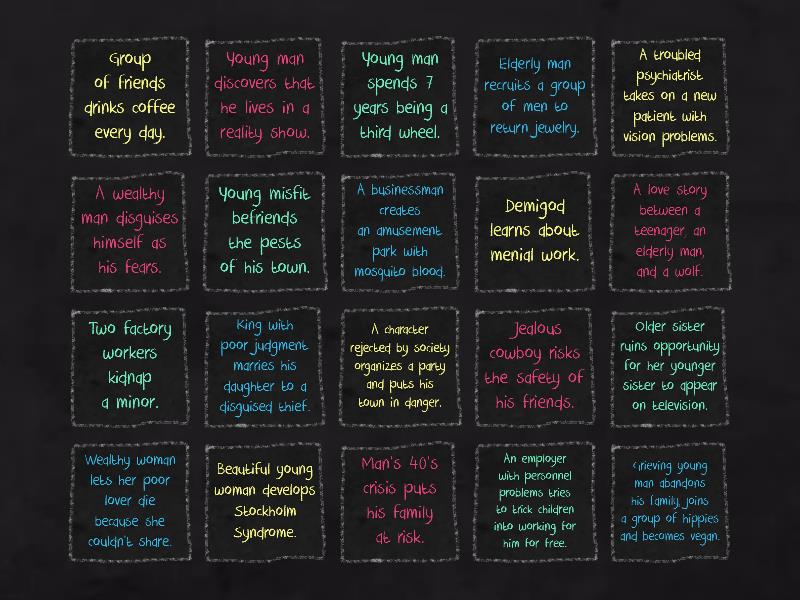 Group
of friends
drinks coffee
every day.
Young man
discovers that
he lives in a
reality show.
Young man
spends 7
years being a
third wheel.
Elderly man
recruits a group
of men to
return jewelry.
A troubled
psychiatrist
takes on a new
patient with
vision problems.
A wealthy
man disguises
himself as
his fears.
Young misfit
befriends
the pests
of his town.
A businessman
creates
an amusement
park with
mosquito blood.
Demigod
learns about
menial work.
A love story
between a
teenager, an
elderly man,
and a wolf.
Two factory
workers
kidnap
a minor.
King with
poor judgment
marries his
daughter to a
disguised thief.
A character
rejected by society
organizes a party
and puts his
town in danger.
Jealous
cowboy risks
the safety of
his friends.
Older sister
ruins opportunity
for her younger
sister to appear
on television.
Wealthy woman
lets her poor
lover die
because she
couldn't share.
Beautiful young
woman develops
Stockholm
Syndrome.
Man's 40's
crisis puts
his family
at risk.
An employer
with personnel
problems tries
to trick children
into working for
him for free.
Grieving young
man abandons
his family, joins
a group of hippies
and becomes vegan.